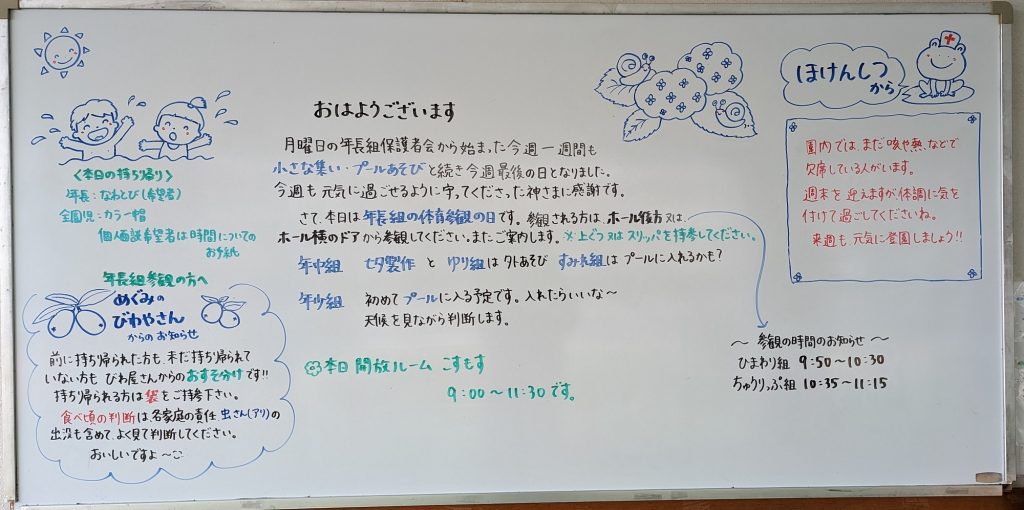 おはようございます
月曜日の年長組保護者会から始まった今週一週間も
小さな集い・プールあそびと続き今週最後の日となりました。
今週も元気に過ごせるように守ってくださった神さまに感謝です。
さて、本日は年長組の体育参観の日です。参観される方は、ホール後方又は、
ホール横のドアから参観してください。またご案内します。※上ぐつ又はスリッパを持参してください。
年中組 七夕製作とゆり組は外あそび すみれ組はプールに入れるかも?
年少組 初めてプールに入る予定です。入れたらいいな〜
天候を見ながら判断します。
本日開放ルーム こすもす
9:00〜11:30です。
<本日の持ち帰り>
年長:なわとび(希望者)
全園児:カラー帽
個人面談希望者は時間についての
お手紙
年長組参観の方へ
めぐみの
びわやさん
からのお知らせ
前に持ち帰られた方も、未だ持ち帰られて
いない方も びわ屋さんからのおすそ分けです!!
持ち帰られる方は袋をご持参下さい。
食べ頃の判断は、各家庭の責任、虫さん(アリ)の
出没も含めて、よく見て判断してください。
おいしいですよ〜
ほけんしつ
から
園内では、まだ咳や熱、などで
欠席している人がいます。
週末を迎えますが、体調に気を
付けて過ごしてくださいね。
来週も元気に登園しましょう!!
〜 参観の時間のお知らせ 〜
ひまわり組 9:50〜10:30
ちゅうりっぷ組 10:35〜11:15